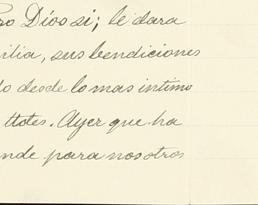 ro Dios si; le dara
ilia, sus bendiciones
lo desde lo mas intimo
Ayer que ha
nde para nosotros